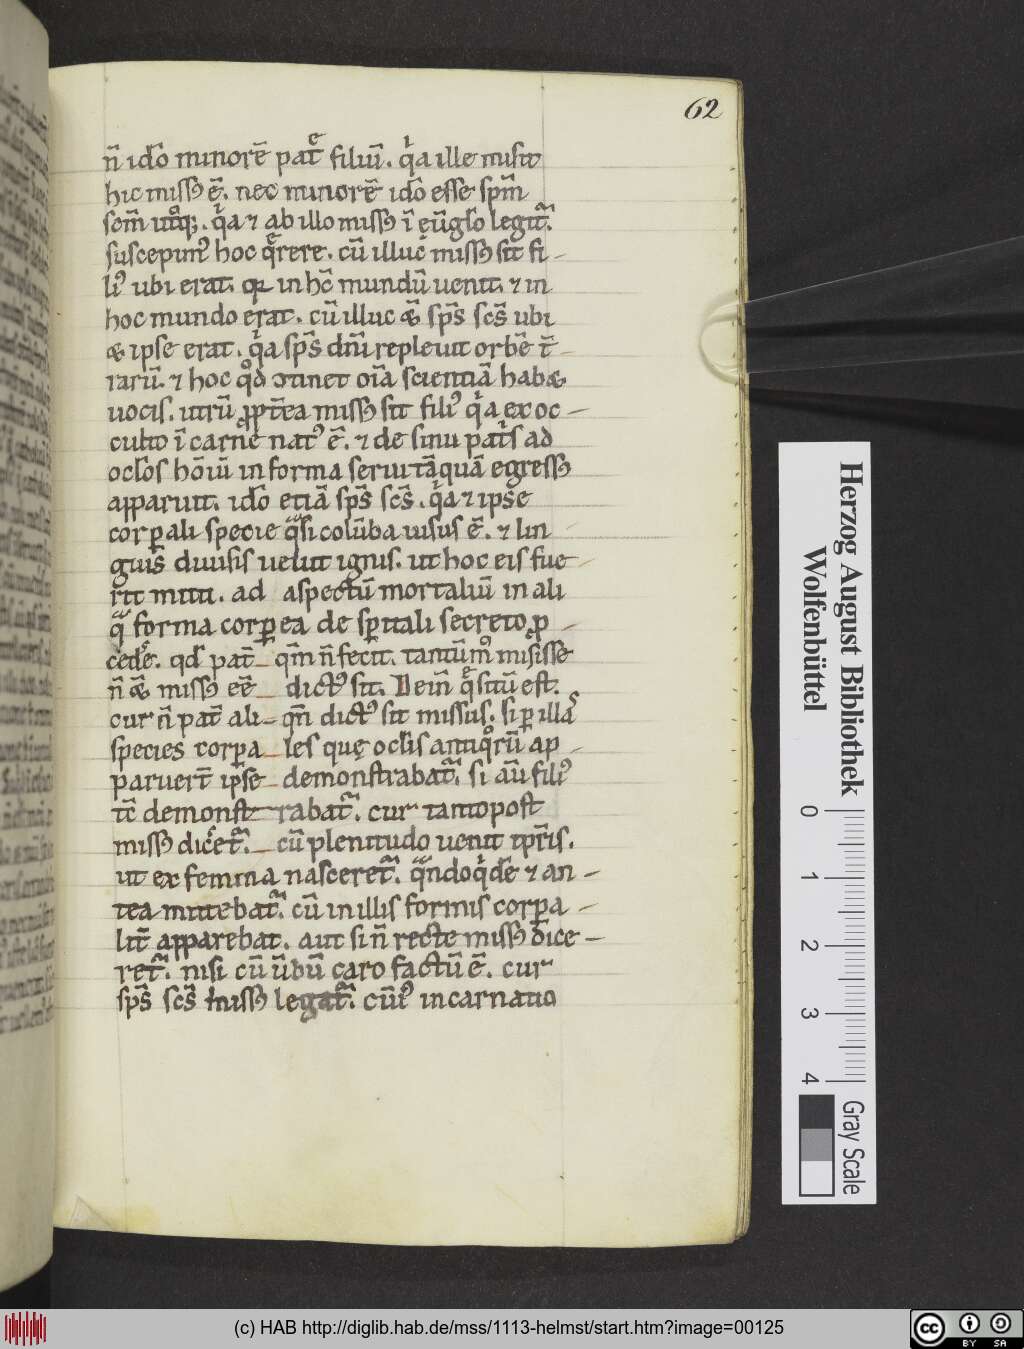 62
n̄ idō minorē pat̄ē filiū. q̇a ille misit
hic missꝰ ē. nec minorē idō esse sp̄m
sc̄m utͦq;. q̇a ⁊ ab illo missꝰ ī euḡlo legit̃.
suscepimꝰ hoc q̄rere. cū illuc missꝰ sit fi-
liꝰ ubi erat. qr in hc̄ mundū uenit. ⁊ in
hoc mundo erat. cū illuc & sp̄s sc̄s ubi
& ipse erat. q̇a sp̄s dn̄i repleuit orbē t̄-
rarū. ⁊ hoc qͦd ꝯtinet oīa scientiā hab&
uocis. utrū ꝓpt̄ea missꝰ sit filiꝰ q̇a ex oc-
culto ī carne natꝰ ē. ⁊ de sinu patris ad
ocl̄os hōiū in forma serui tāquā egressꝰ
apparuit. idō etiā sp̄s sc̄s. q̇a ⁊ ipse
corꝑali specie qͣsi colūba uisus ē. ⁊ lin
guis diuisis uelut ignis. ut hoc eis fue-
rit mitti. ad aspectū mortaliū in ali
qͣ forma corꝑea de sp̄itali secreto ꝓ-
cedere. qd̄ pat̄ qm̄ n̄ fecit. tantūmͦ misisse
n̄ & missꝰ eē dictꝰ sit. Dein̄ q̄situ est.
cur n̄ pat̄ ali-qn̄ dictꝰ sit missus. si ꝑ illas
species corꝑa les quę ocl̄is antiqͦrū ap-
paruert̄ ipse demonstrabat̃. si aū filiꝰ
tc̄ demonst rabat̃. cur tanto post
missꝰ dicet̃. cū plenitudo uenit tp̄ris.
ut ex femina nasceret̃. qͣndoq̇dē ⁊ an-
tea mittebat̃. cū in illis formis corꝑa-
lit̄ apparebat. aut si n̄ recte missꝰ dice-
ret̃. nisi cū ūbū caro factū ē. cur
sp̄s sc̄s missꝰ legat̃. cuīꝰ incarnatio
Herzog August Bibliothek
Wolfenbüttel
0 1 2 3 4
Gray Scale
(c) HAB http://diglib.hab.de/mss/1113-helmst/start.htm?image=00125
cc BY SA